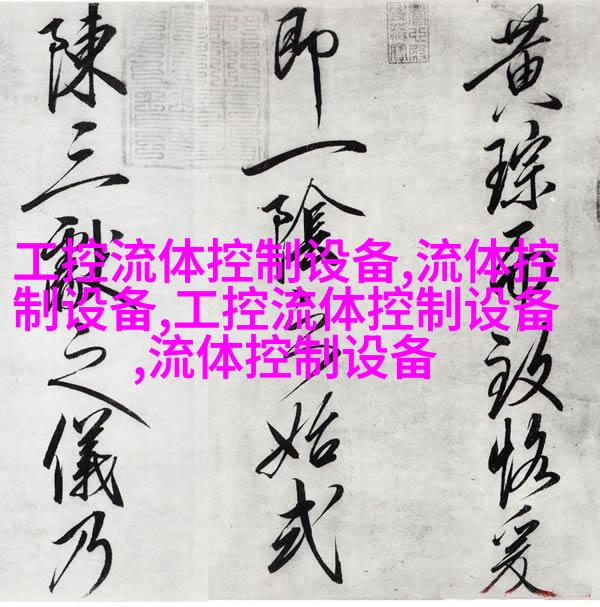 黄琮致恪爰
即一陰之始式
陳三獻之儀乃
工控流体控制设备,流体控
制设备,工控流体控制设备
,流体控制设备